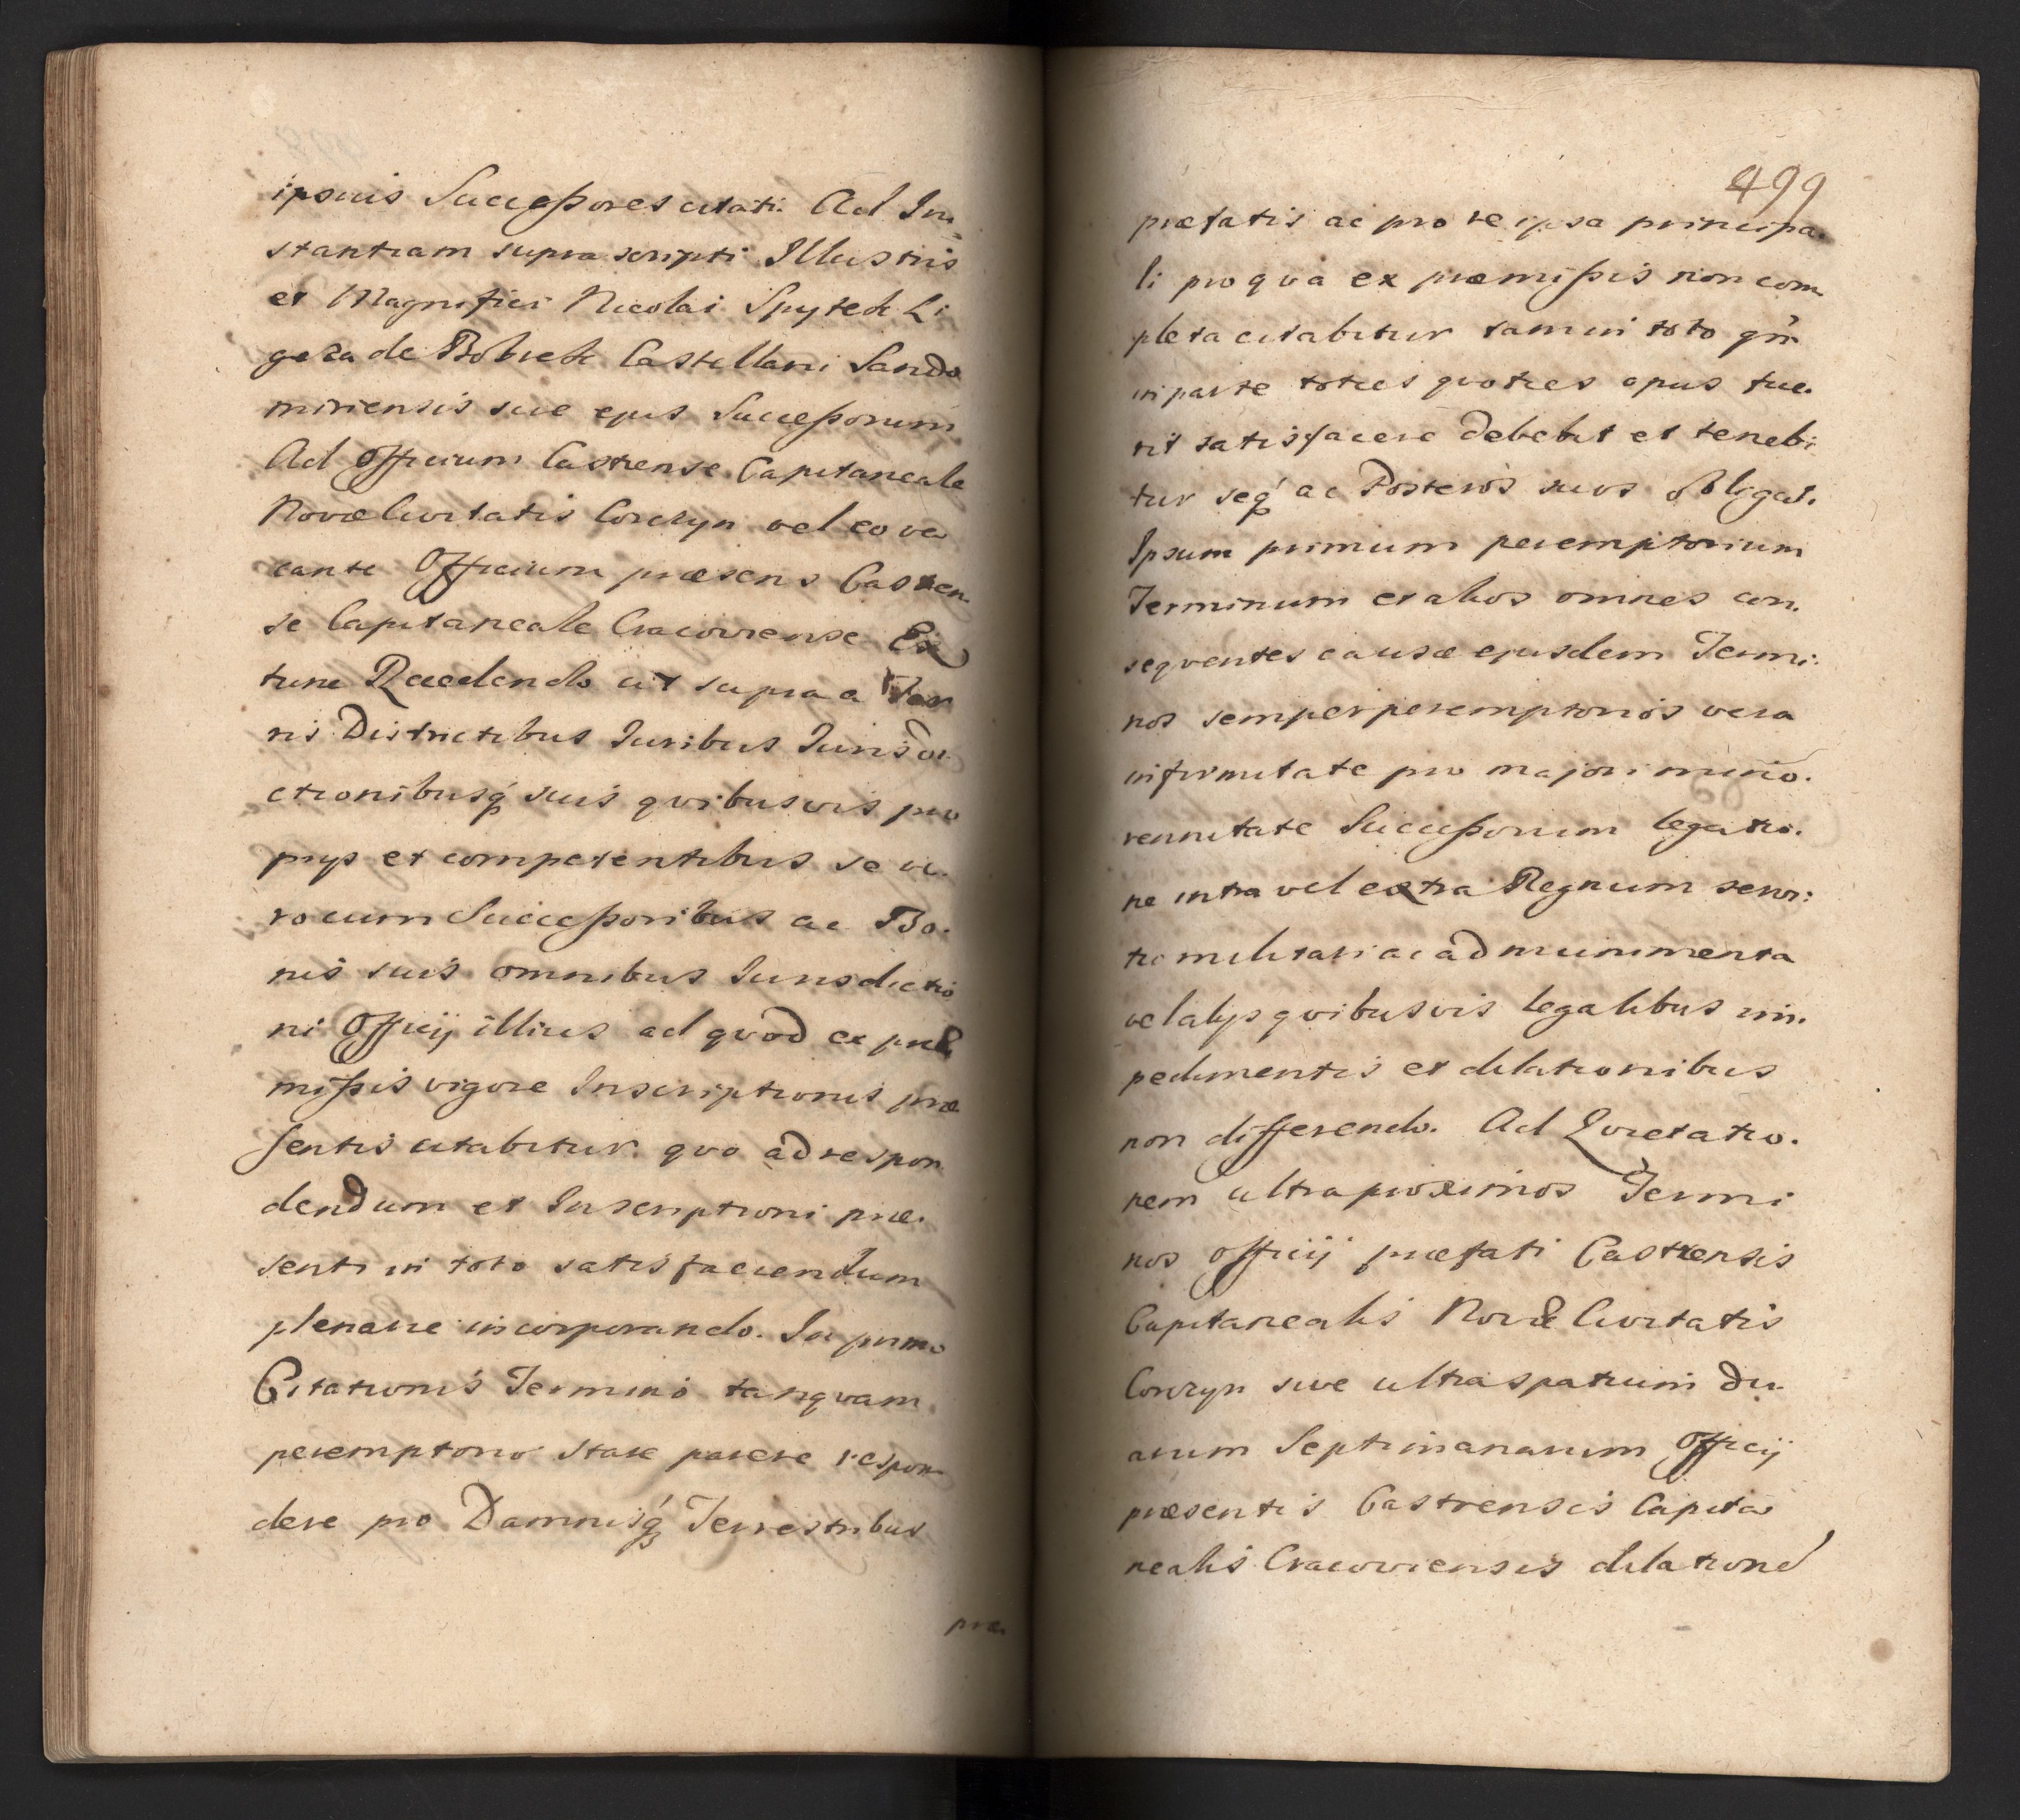 ipsius Successores citati. Ad In=
stantiam supra scripti Illustris
et Magnifici Nicolai Spytek Li
geza de Bobrek Castellani Sando
miriensis sive ejus Successorum
Ad Officium Castrense Capitaneale
Novæ Civitatis Corczyn vel eo va
cante Officium præsens Castren
se Capitaneale Cracoviense Ex
tunc Recedendo ut supra a Ter
ris Districtibus Juribus Jurisdi
ctionibusq́ suis qvibusvis pro
prijs et competentibus se ve.
ro cum Successoribus ac Bo.
nis suis omnibus Jurisdictio
ni Officij illius ad qvod ex præ
missis vigore Inscriptionis præ
sentis citabitur qvo ad respon
dendum et Inscriptioni præ.
senti in toto satisfaciendum
plenarie incorporando. In primo
Citationis Termino tanqvam
peremptorio stare parere respon
dere pro Damnisq́ Terrestribus
præ
499
præfatis ac pro re ipsa principa.
li pro qva ex præmissis non com
pleta citabitur tam in toto qm̃
in parte toties qvoties opus fue.
rit satisfacere debebit et tenebi
tur seq́ ac Posteros suos obligat.
Ipsum primum peremptorium
Terminum et alios omnes con.
seqventes causæ ejusdem Termi.
nos semper peremptorios vera
infirmitate pro majori mino.
rennitate Successorum legatio.
ne intra vel extra Regnum servi:
tio militari ac ad munimenta
vel alijs qvibusvis legalibus im.
pedimentis et dilationibus
non differendo. Ad Qvietatio.
nem ultra proximos Termi
nos Officij præfati Castrensis
Capitanealis Novæ Civitatis
Corczyn sive ultra spatium du
arum Septimanarum Officij
præsentis Castrensis Capita
nealis Cracoviensis dilatione